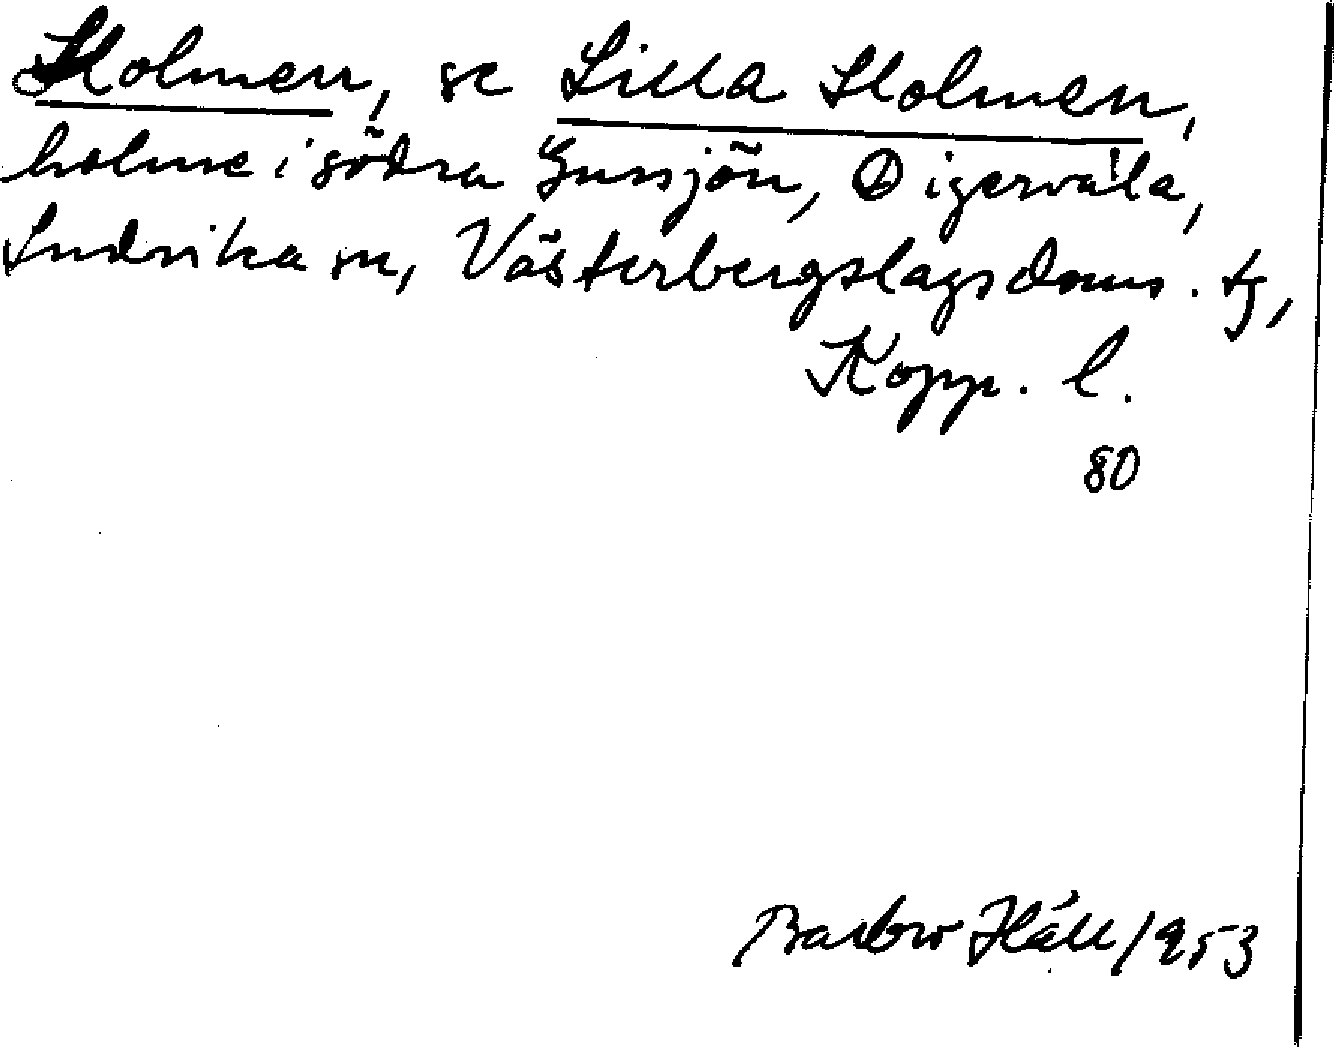 Holmen, se Lilla Holmen,
holme i södra Gussjön, Digervåla,
Ludvika sn, Västerbergslags doms. tg,
Kopp. l.
80
Barbro Häll 1953